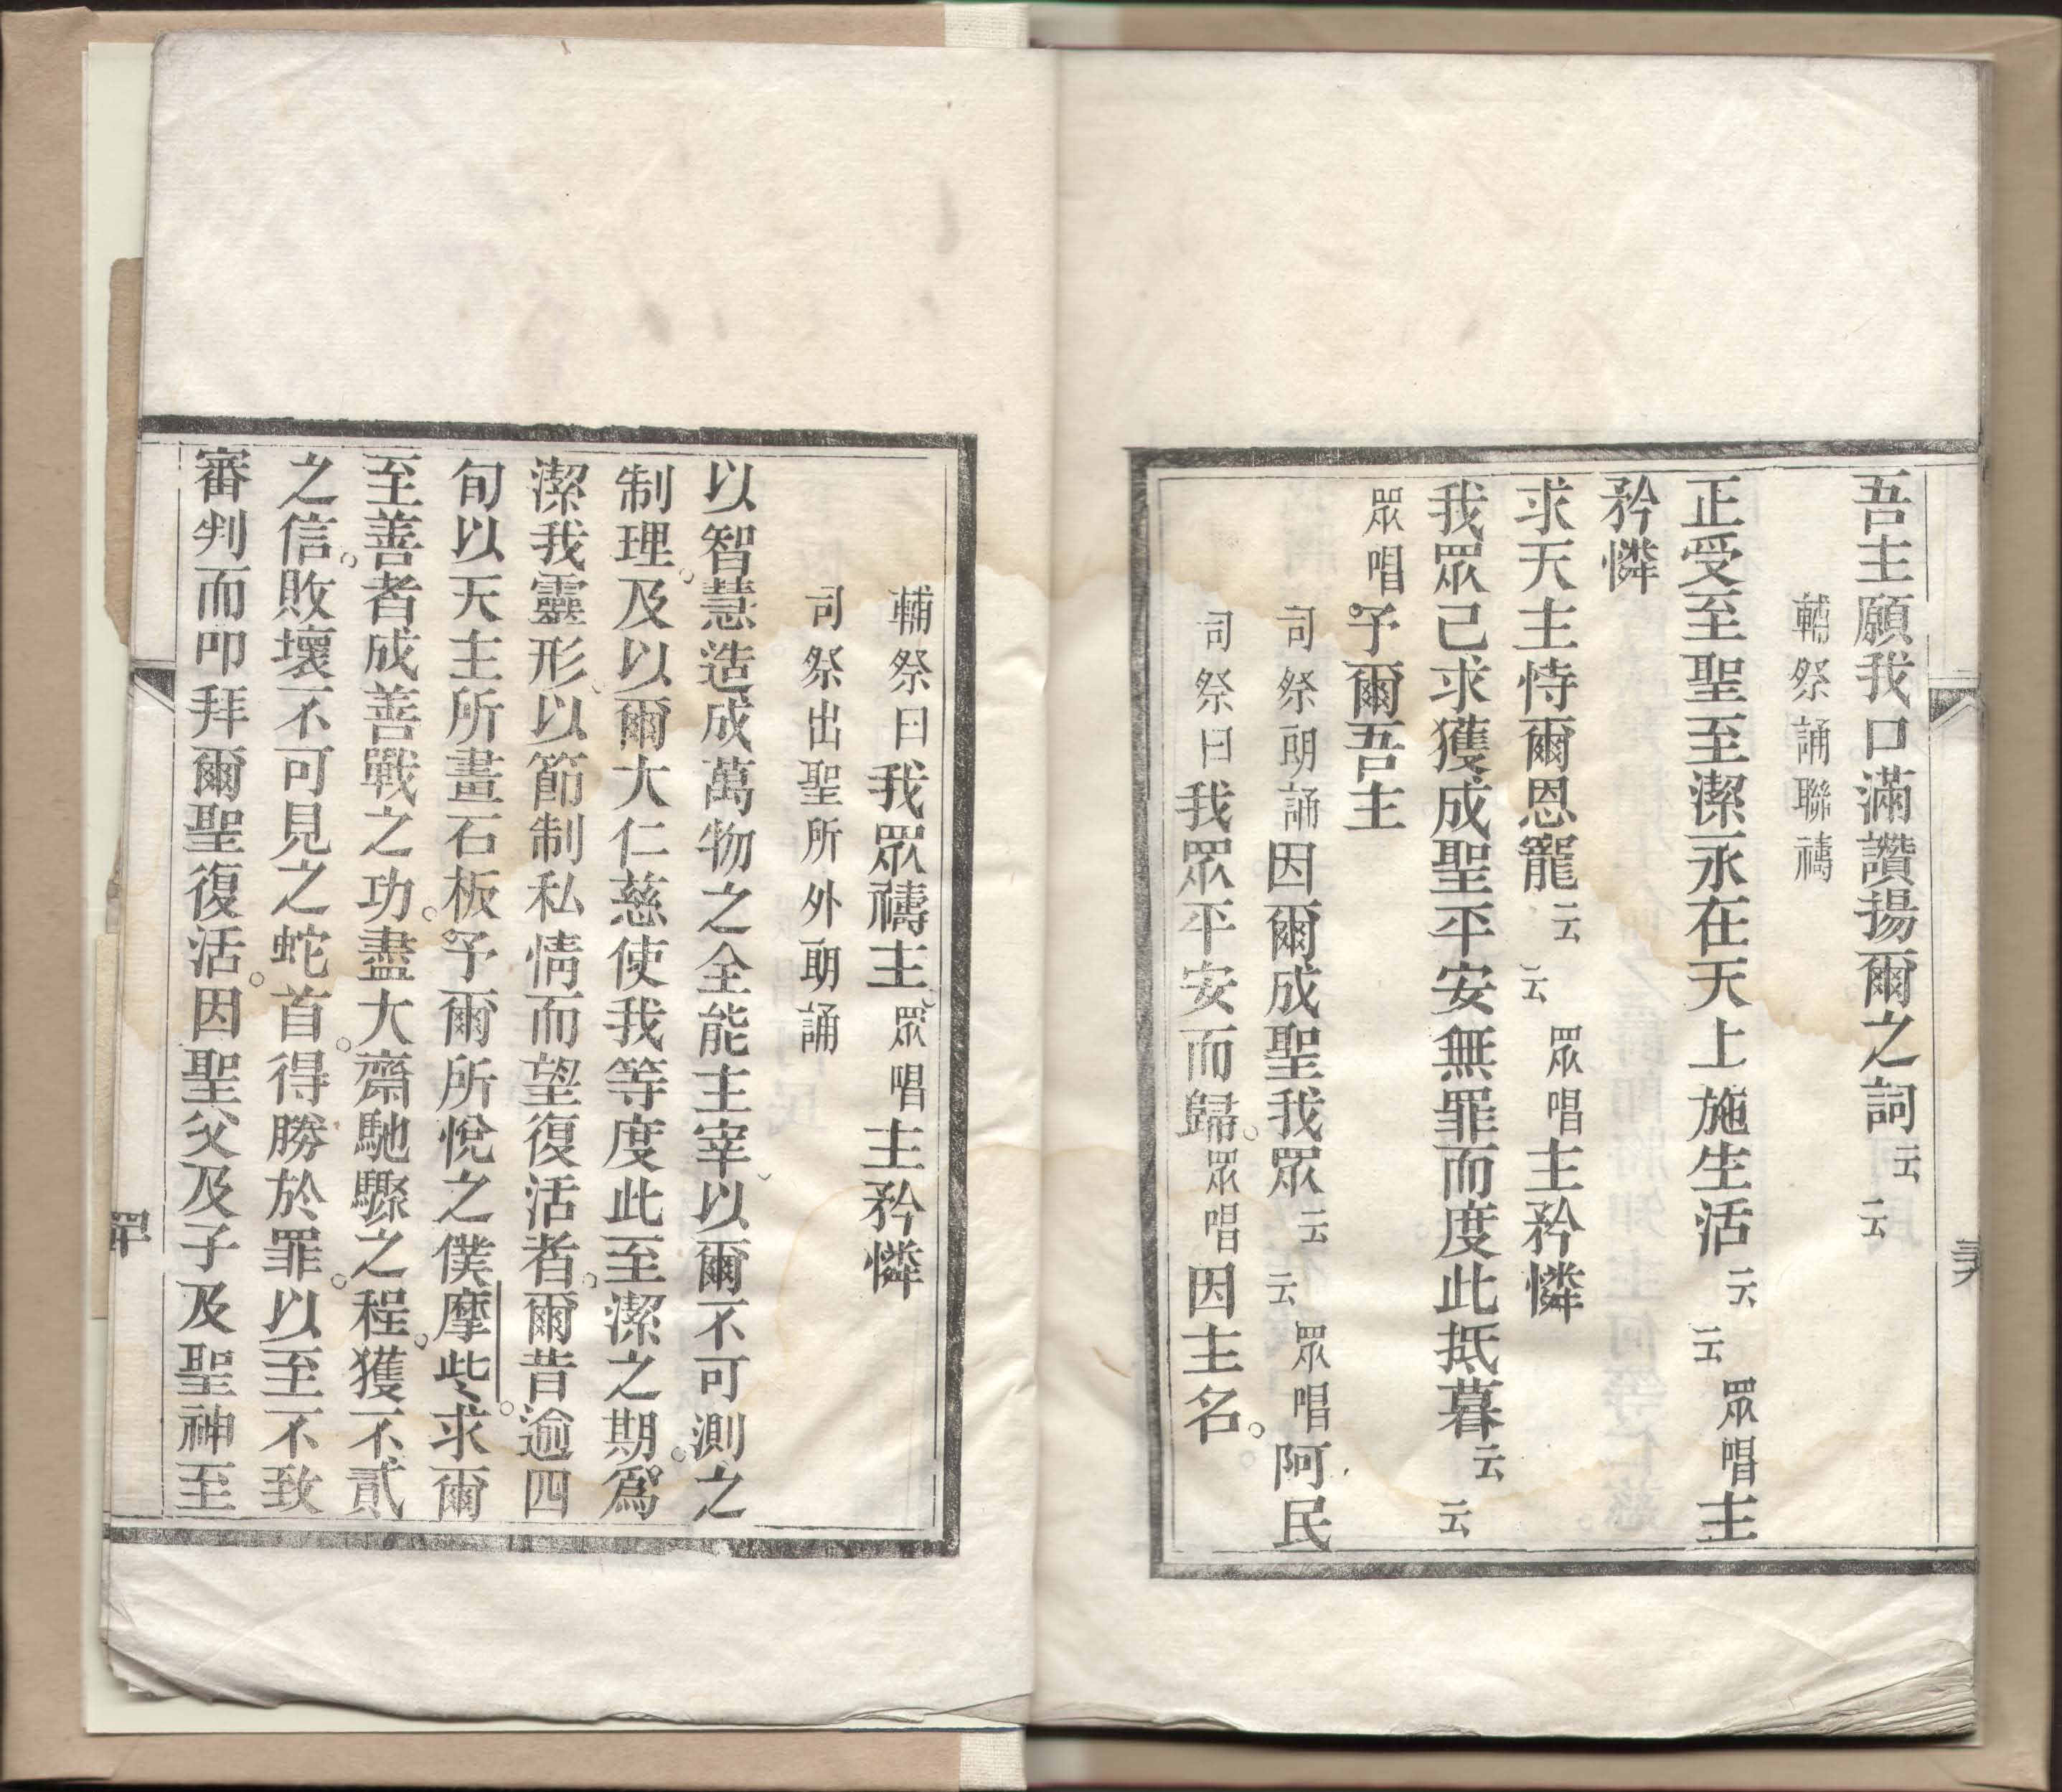 吾主願我口滿讚揚爾之詞云云
輔祭誦聯禱
正受至聖至潔永在天上施生活云云眾唱主
矜憐
求天主恃爾恩寵云云眾唱主矜憐
我眾己求獲成聖平安無罪而度此抵暮云云
眾唱予爾吾主
司祭朗誦因爾成聖我眾云云眾唱阿民
司祭曰我眾平安而歸。眾唱因主名。
輔祭曰我眾禱主、眾唱主矜憐
司祭出聖所外朗誦
以智慧造成萬物之全能主宰、以爾不可測之
制理。及以爾大仁慈使我等度此至潔之期。爲
潔我靈形、以節制私情而望復活者。爾昔逾四
旬以天主所畫石板。予爾所悅之僕摩些。求爾
至善者成善戰之功。盡大齋馳驟之程。獲不貳
之信。敗壞不可見之蛇首。得勝於罪。以至不致
審判而叩拜爾聖復活。因聖父及子及聖神至